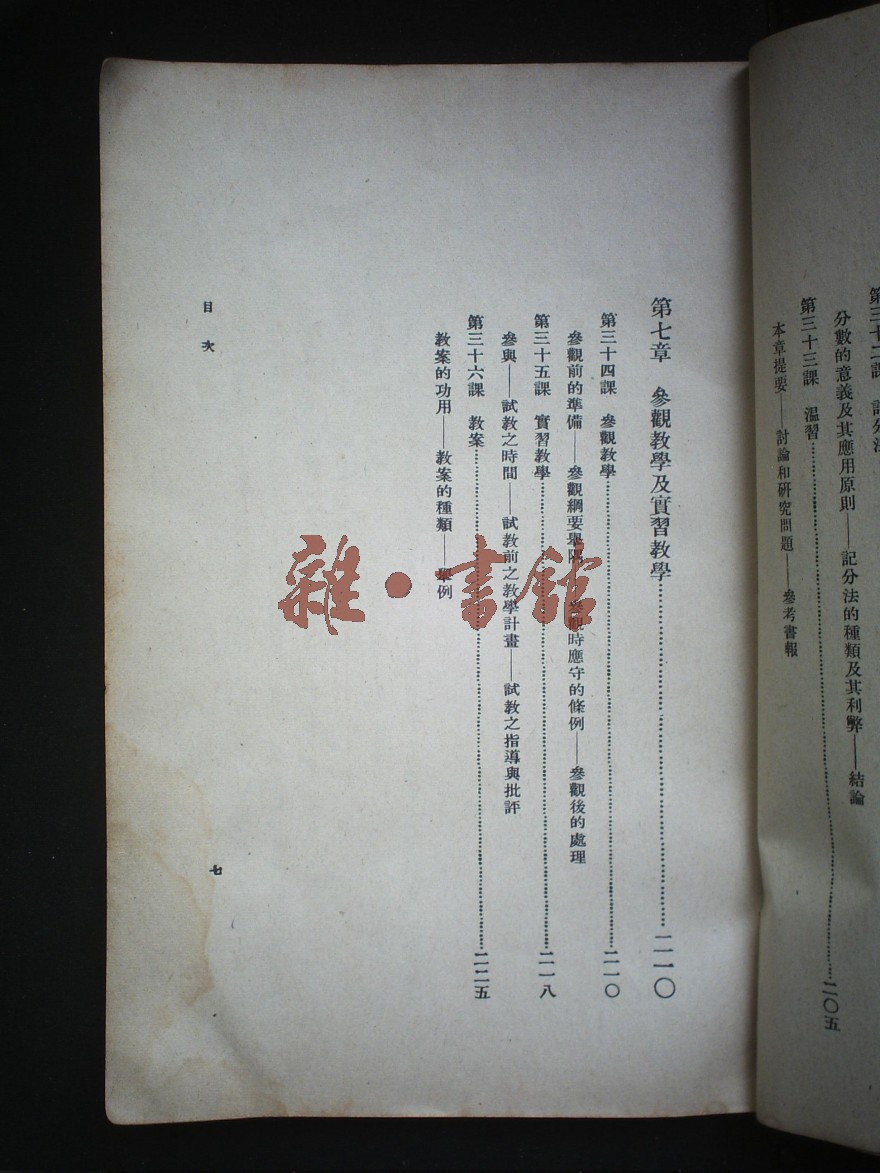 分數的意義及其應用原則——記分法的種類及其利弊——結論
第三十三課　溫習……二〇五
本章提要——討論和研究問題——參考書報
第七章　參觀教學及實習教學……二一〇
第三十四課　參觀教學……二一〇
參觀前的準備——參觀綱要舉隅——參觀時應守的條例——參觀後的處理
第三十五課　實習教學……二一八
參與——試教之時間——試教前之教學計畫——試教之指導與批評
第三十六課　教案……二二五
教案的功用——教案的種類——舉例
目次
七
雜·書館